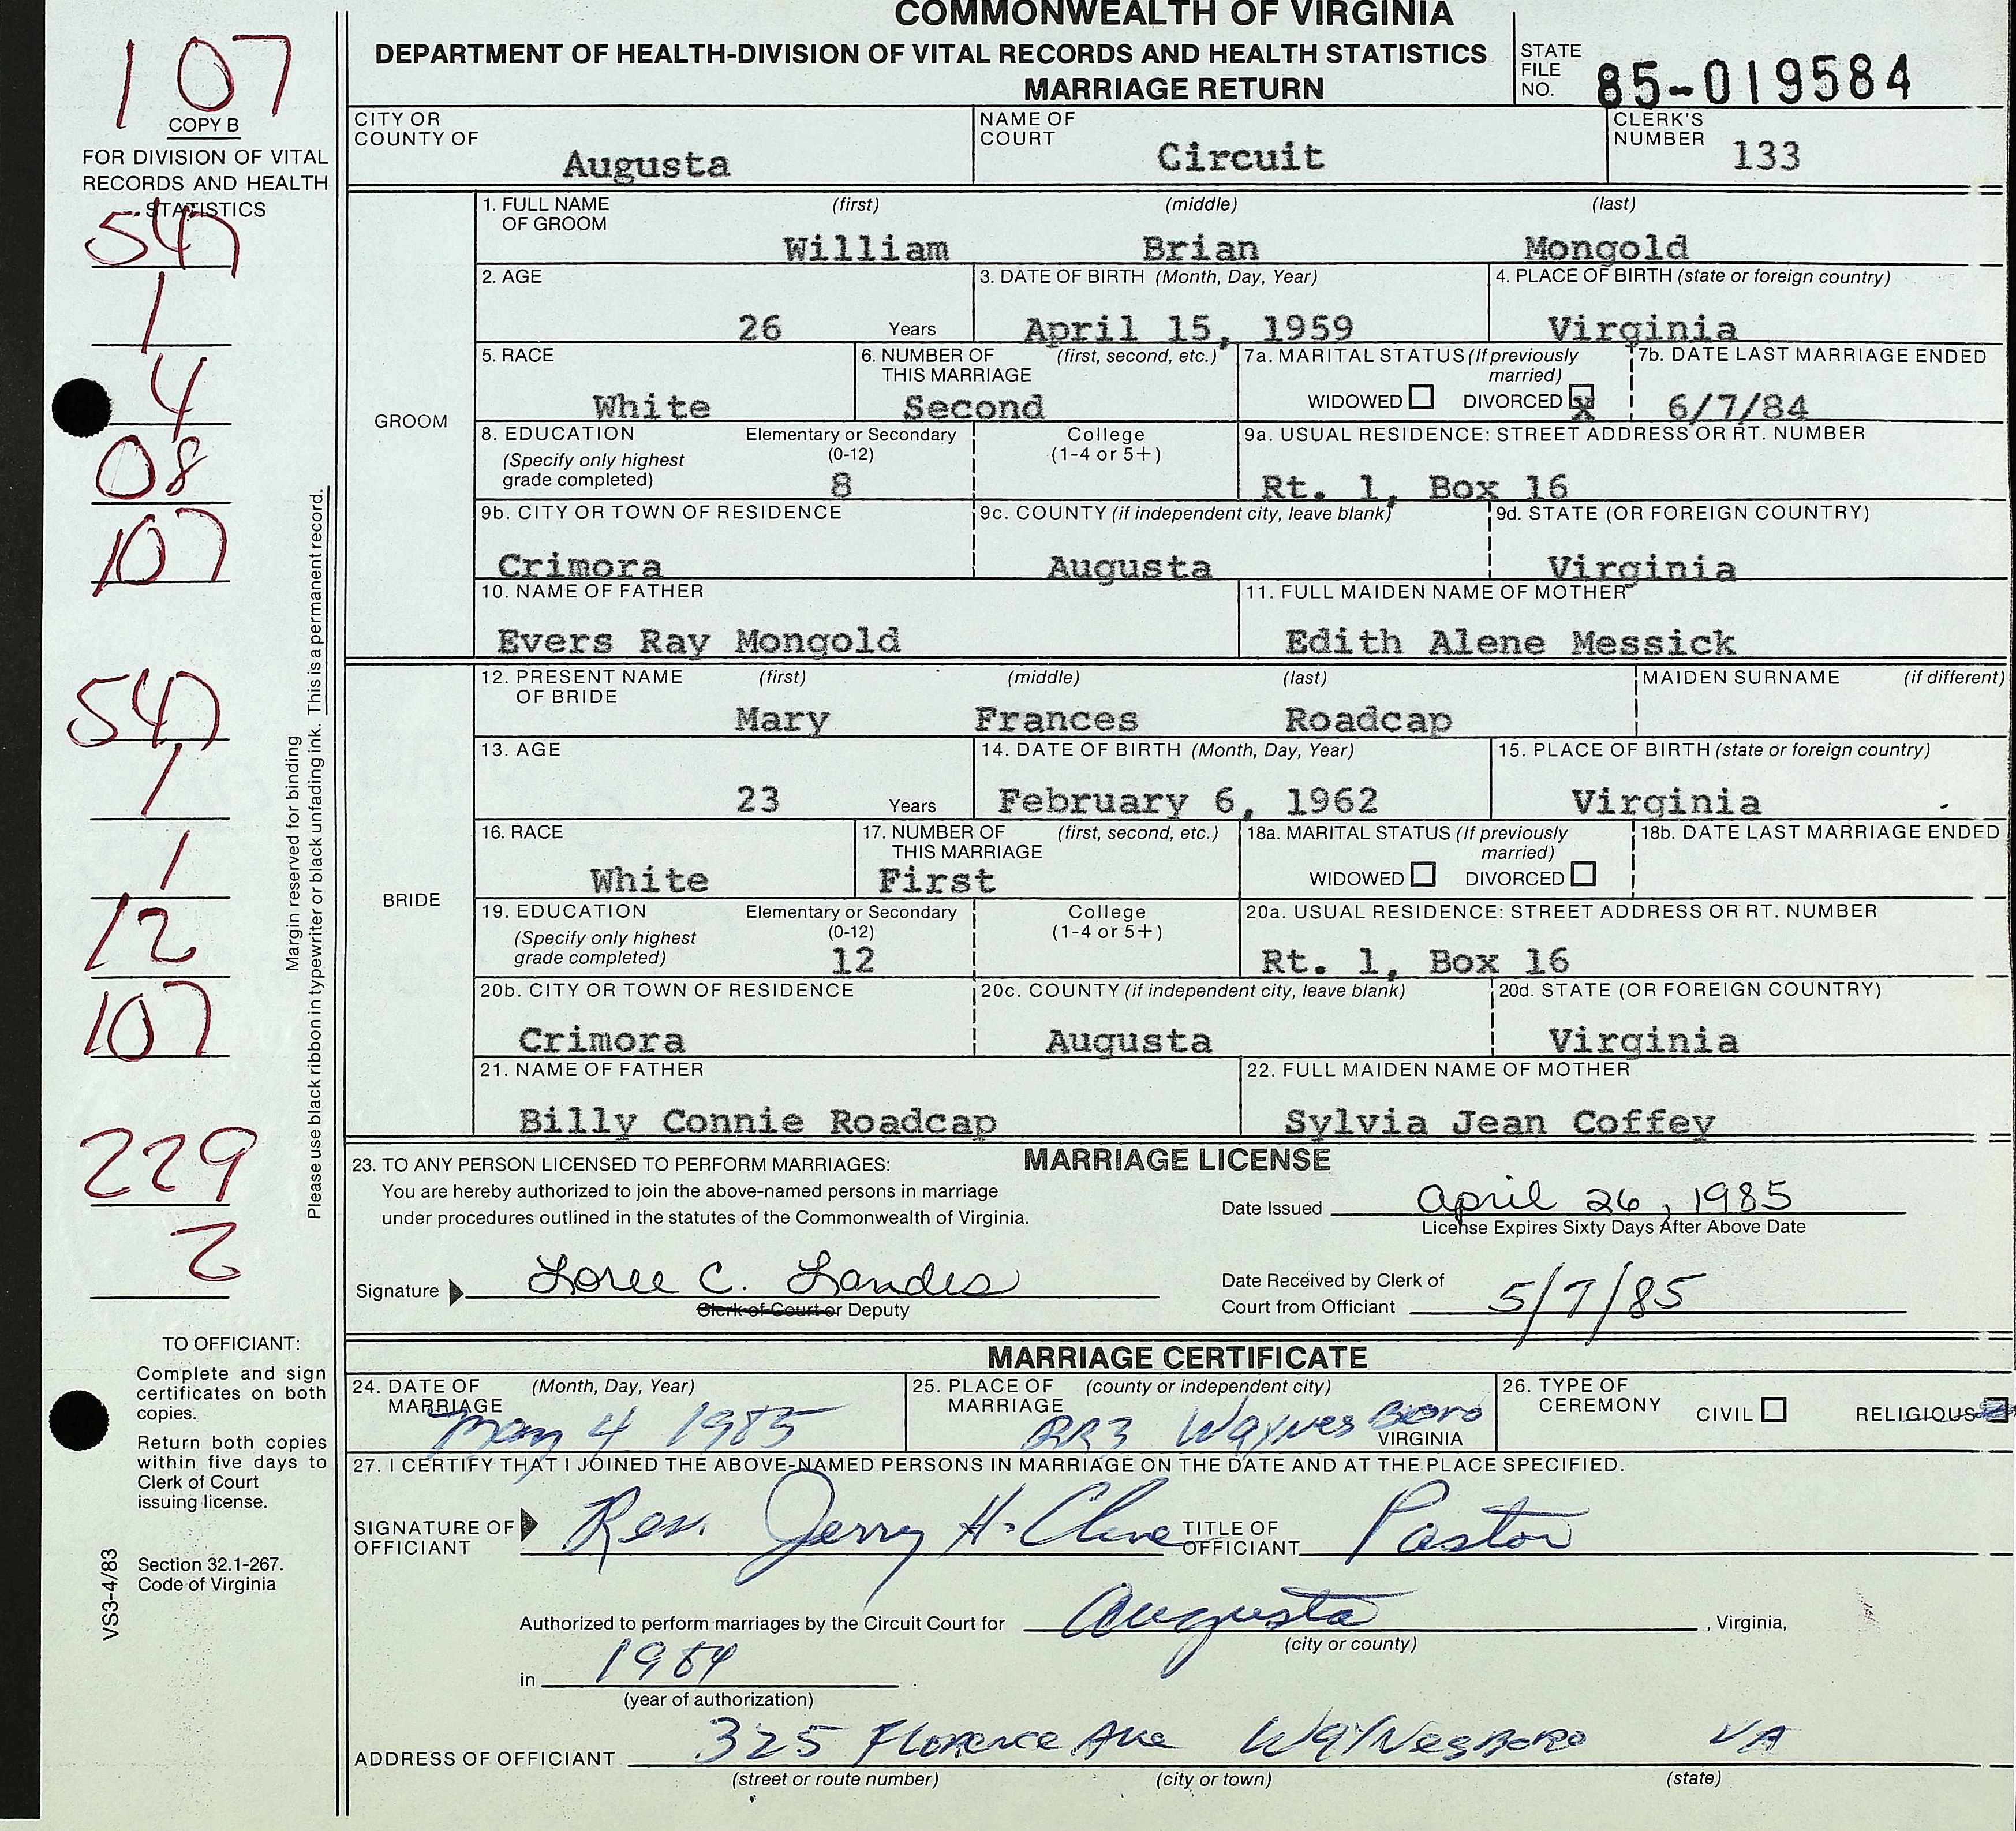 COMMONWEALTH OF VIRGINIA
DEPARTMENT OF HEALTH-DIVISION OF VITAL RECORDS AND HEALTH STATISTICS
MARRIAGE RETURN
STATE FILE NO. 85-019584
107
COPY B
FOR DIVISION OF VITAL
RECORDS AND HEALTH
STATISTICS
547
1
4
08
107
547
1
1
12
107
229
2
Margin reserved for binding
Please use black ribbon in typewriter or black unfading ink. This is a permanent record.
TO OFFICIANT:
Complete and sign
certificates on both
copies.
Return both copies
within five days to
Clerk of Court
issuing license.
Section 32.1-267.
Code of Virginia
VS3-4/83
CITY OR COUNTY OF Augusta
NAME OF COURT Circuit
CLERK'S NUMBER 133
GROOM
1. FULL NAME OF GROOM (first) (middle) (last)
William Brian Mongold
2. AGE 26 Years
3. DATE OF BIRTH (Month, Day, Year) April 15, 1959
4. PLACE OF BIRTH (state or foreign country) Virginia
5. RACE White
6. NUMBER OF THIS MARRIAGE (first, second, etc.) Second
7a. MARITAL STATUS (If previously married) WIDOWED DIVORCED X
7b. DATE LAST MARRIAGE ENDED 6/7/84
8. EDUCATION (Specify only highest grade completed) Elementary or Secondary (0-12) 8 College (1-4 or 5+)
9a. USUAL RESIDENCE: STREET ADDRESS OR RT. NUMBER Rt. 1, Box 16
9b. CITY OR TOWN OF RESIDENCE Crimora
9c. COUNTY (if independent city, leave blank) Augusta
9d. STATE (OR FOREIGN COUNTRY) Virginia
10. NAME OF FATHER Evers Ray Mongold
11. FULL MAIDEN NAME OF MOTHER Edith Alene Messick
BRIDE
12. PRESENT NAME OF BRIDE (first) (middle) (last) MAIDEN SURNAME (if different)
Mary Frances Roadcap
13. AGE 23 Years
14. DATE OF BIRTH (Month, Day, Year) February 6, 1962
15. PLACE OF BIRTH (state or foreign country) Virginia
16. RACE White
17. NUMBER OF THIS MARRIAGE (first, second, etc.) First
18a. MARITAL STATUS (If previously married) WIDOWED DIVORCED
18b. DATE LAST MARRIAGE ENDED
19. EDUCATION (Specify only highest grade completed) Elementary or Secondary (0-12) 12 College (1-4 or 5+)
20a. USUAL RESIDENCE: STREET ADDRESS OR RT. NUMBER Rt. 1, Box 16
20b. CITY OR TOWN OF RESIDENCE Crimora
20c. COUNTY (if independent city, leave blank) Augusta
20d. STATE (OR FOREIGN COUNTRY) Virginia
21. NAME OF FATHER Billy Connie Roadcap
22. FULL MAIDEN NAME OF MOTHER Sylvia Jean Coffey
MARRIAGE LICENSE
23. TO ANY PERSON LICENSED TO PERFORM MARRIAGES:
You are hereby authorized to join the above-named persons in marriage
under procedures outlined in the statutes of the Commonwealth of Virginia.
Date Issued April 26, 1985
License Expires Sixty Days After Above Date
Signature Loree C. Landes
Clerk of Court or Deputy
Date Received by Clerk of
Court from Officiant 5/7/85
MARRIAGE CERTIFICATE
24. DATE OF MARRIAGE (Month, Day, Year) May 4 1985
25. PLACE OF MARRIAGE (county or independent city) RR3 Waynes Boro VIRGINIA
26. TYPE OF CEREMONY CIVIL RELIGIOUS
27. I CERTIFY THAT I JOINED THE ABOVE-NAMED PERSONS IN MARRIAGE ON THE DATE AND AT THE PLACE SPECIFIED.
SIGNATURE OF OFFICIANT Rev. Jerry H. Cline TITLE OF OFFICIANT Pastor
Authorized to perform marriages by the Circuit Court for Augusta, Virginia,
(city or county)
in 1984.
(year of authorization)
ADDRESS OF OFFICIANT 325 Florence Ave Waynesboro VA
(street or route number) (city or town) (state)